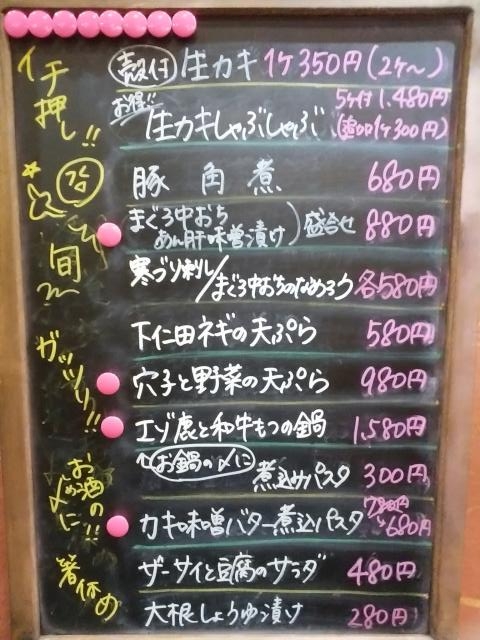 イチ押し!!
殻付 生カキ 1ケ 350円(2ケ〜)
お得!! 5ケ付 1,480円
生カキしゃぶしゃぶ (追加1ケ300円)
豚 角 煮 680円
まぐろ中おち
あん肝味噌漬け 盛合せ 880円
旬
寒ブリ刺し/まぐろ中おちのなめろう 各580円
下仁田ネギの天ぷら 580円
ガッツリ!!
穴子と野菜の天ぷら 980円
エゾ鹿と和牛もつの鍋 1,580円
お鍋の〆に
煮込みパスタ 300円
お酒の〆に!!
カキ味噌バター煮込パスタ 780円 680円
ザーサイと豆腐のサラダ 480円
箸休め
大根しょうゆ漬け 280円